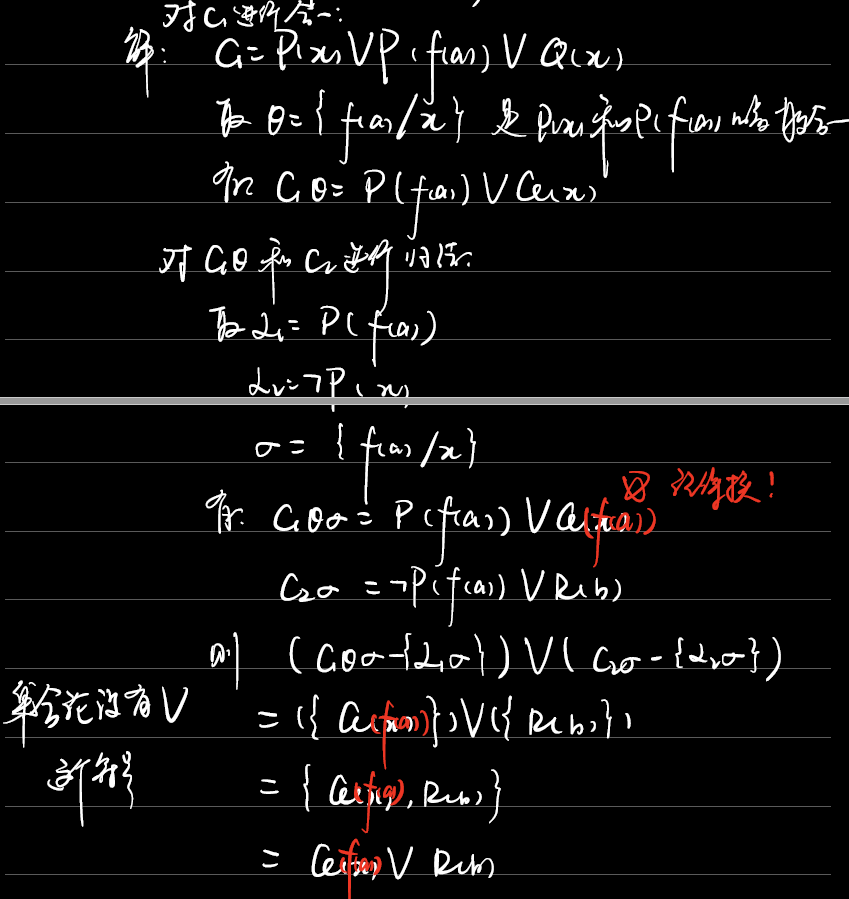 对C₁进行合一:
解: C₁=P(x)∨P(f(a))∨Q(x)
取 θ={f(a)/x} 是P(x)和P(f(a))的最一般合一
有: C₁θ=P(f(a))∨Q(x)
对C₁θ和C₂进行归结:
取 L₁=P(f(a))
L₂=¬P(x)
σ={f(a)/x}
被替换!
有: C₁θσ=P(f(a))∨Q(f(a))
C₂σ=¬P(f(a))∨R(b)
则 (C₁θσ-{L₁σ})∨(C₂σ-{L₂σ})
集合论没有∨
=({Q(f(a))})∨({R(b)})
这个符号
={Q(f(a)),R(b)}
=Q(f(a))∨R(b)